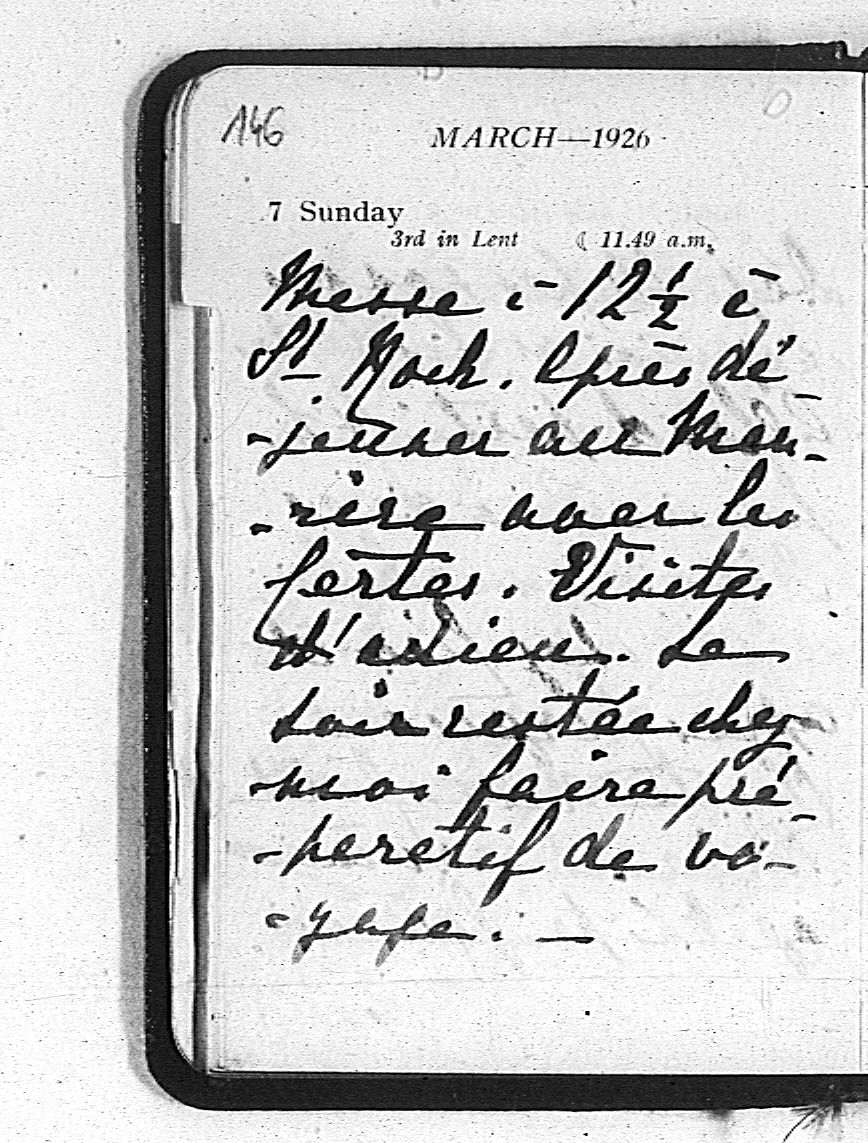 146
MARCH—1926
7 Sunday
3rd in Lent ☾ 11.49 a.m.
Messe à 12 ½ à
St Roch. Après dé
-jeuner au Meu-
-rice avec les
Visites
d'adieu. Le
soir restée chez
moi faire pré-
-paratif de vo-
-yage. —